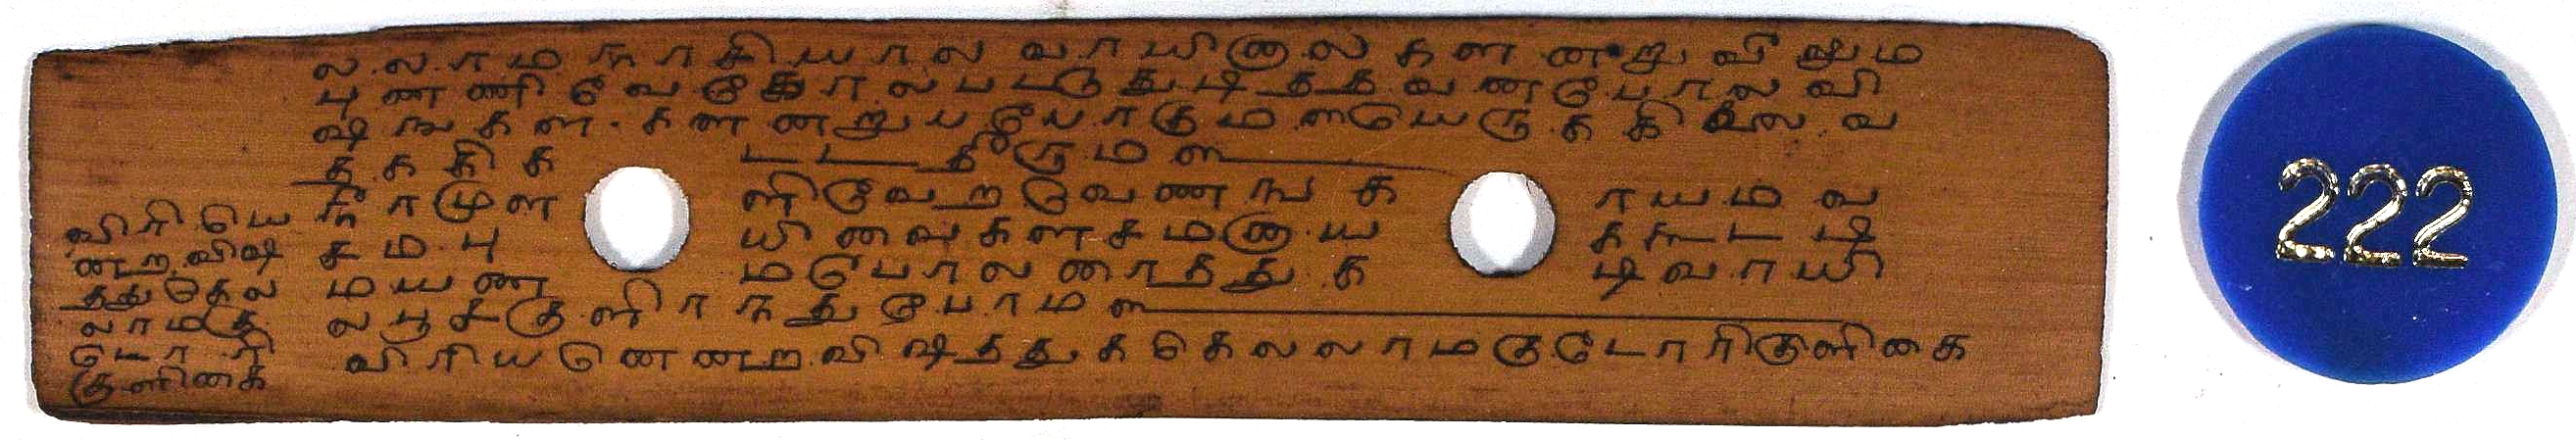 ல லாமநாசியால வாயினால கனனறு விஷம
புணணி வேகோலபடடுதுடிதத வணபோல வி
ஷஙகள கனனறுயபோகுமளயெருககிலை வ
தககிக டடததீருமள
நீ ராமுள ளிவேறவேணஙக ராயமவ
சமபு யிவைகளசமனாய ககூடடி
மயண மபோலனாததுக டிவாயி
லபூசகுளிரநதுபோமள
விரியனெனறவிஷததுககெலலாமகுடோரிகுளிகை
விரியெ
னறவிஷ
தது கெல
லாமகு
டோரி
குளிகை
222